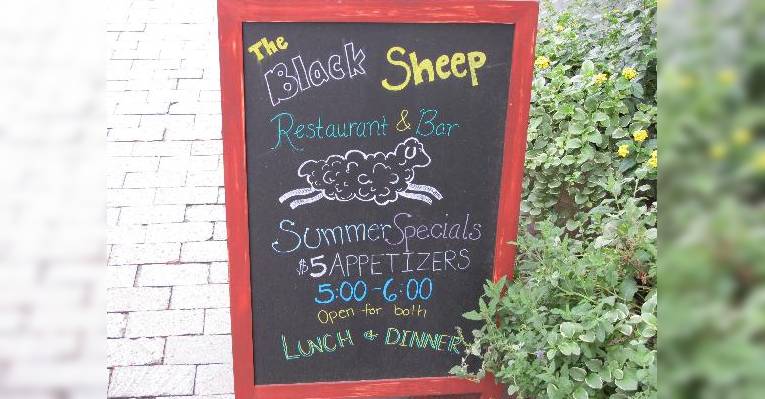 The
Black Sheep
Restaurant & Bar
Summer Specials
$5 APPETIZERS
5:00-6:00
Open for both
LUNCH & DINNER